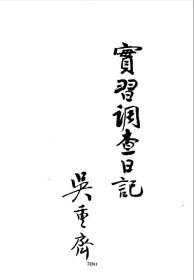 實習調查日記
吳重齊